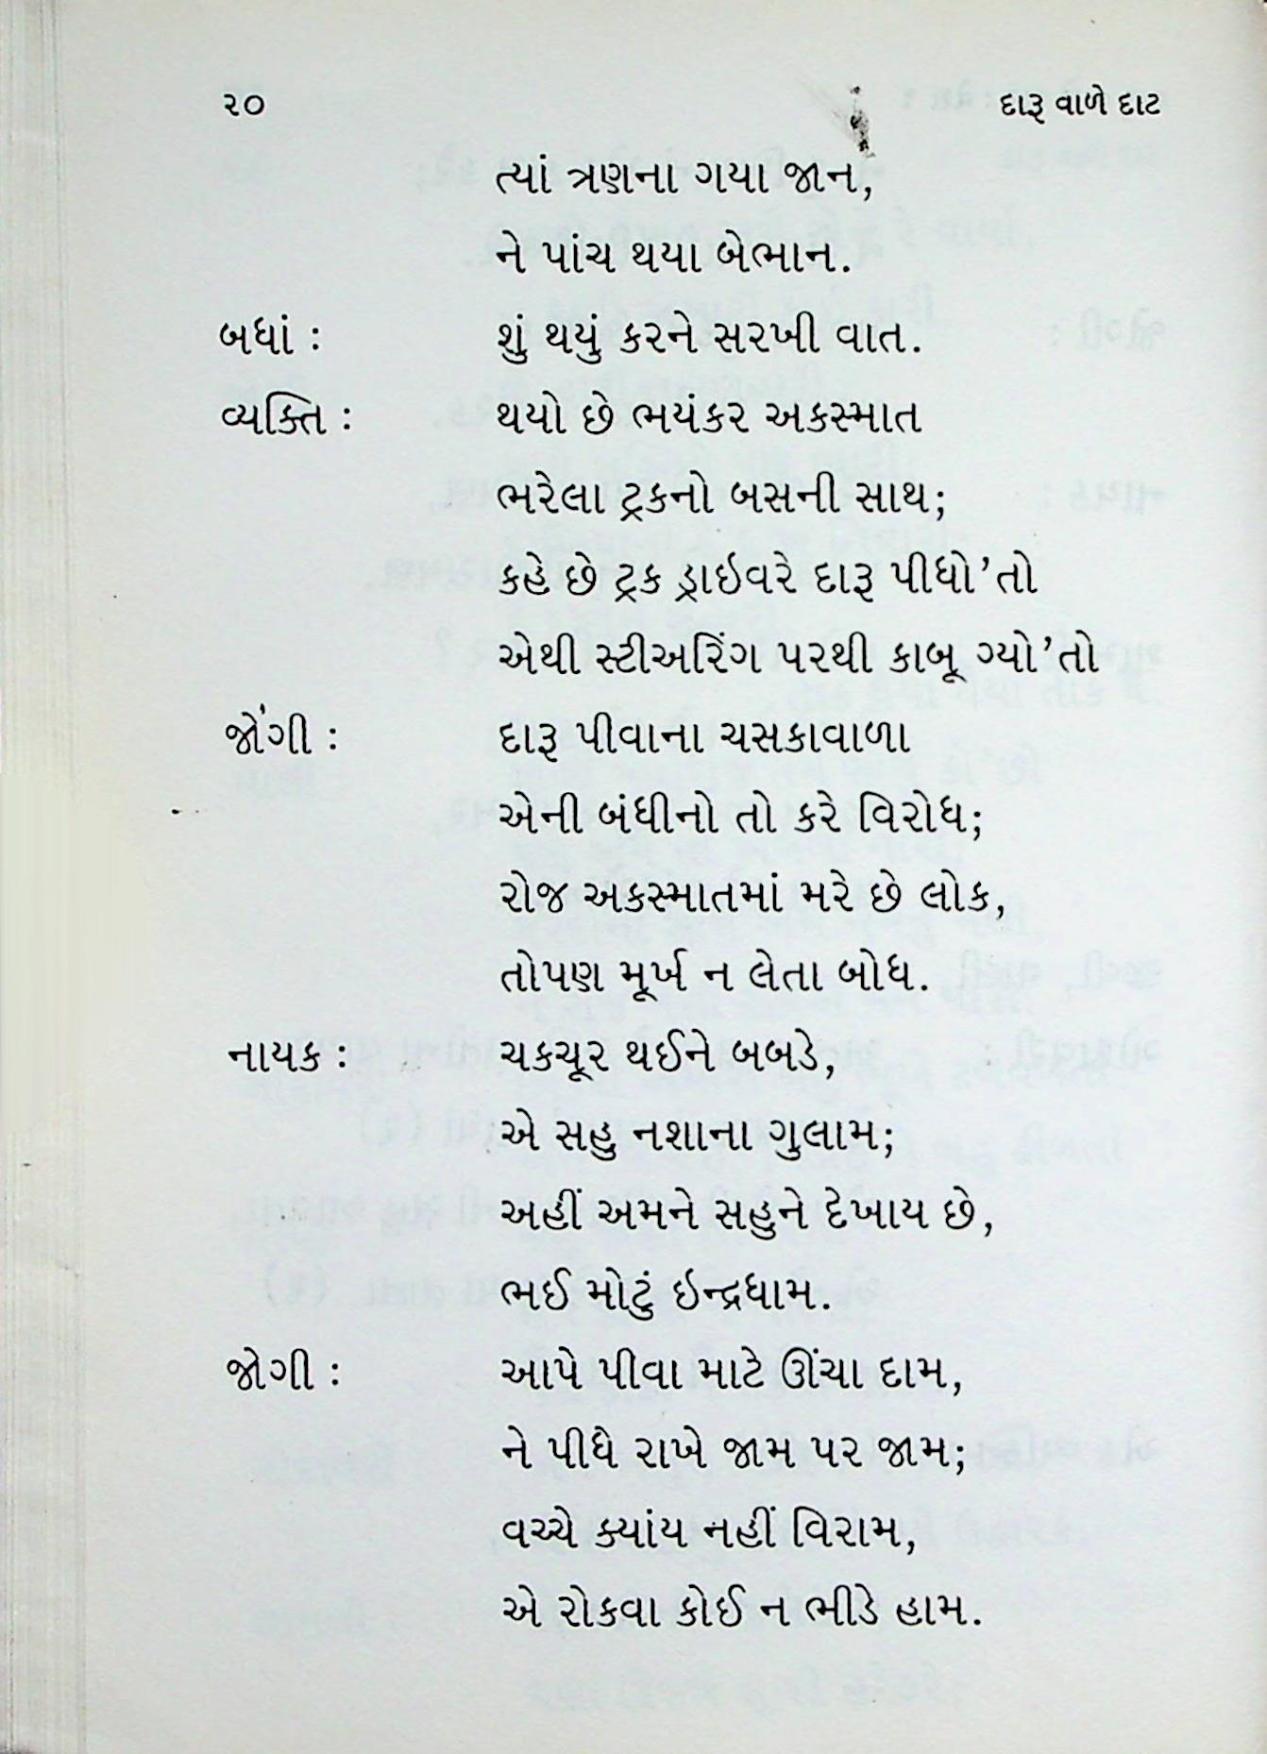 ૨૦ દારૂ વાળે દાટ
ત્યાં ત્રણના ગયા જાન,
ને પાંચ થયા બેભાન.
બધાં : શું થયું કરને સરખી વાત.
વ્યક્તિ : થયો છે ભયંકર અકસ્માત
ભરેલા ટ્રકનો બસની સાથ;
કહે છે ટ્રક ડ્રાઇવરે દારૂ પીધો’તો
એથી સ્ટીઅરિંગ પરથી કાબૂ ગ્યો’તો
જોગી : દારૂ પીવાના ચસકાવાળા
એની બંધીનો તો કરે વિરોધ;
રોજ અકસ્માતમાં મરે છે લોક,
તોપણ મૂર્ખ ન લેતા બોધ.
નાયક : ચકચૂર થઈને બબડે,
એ સહુ નશાના ગુલામ;
અહીં અમને સહુને દેખાય છે,
ભઈ મોટું ઇન્દ્રધામ.
જોગી : આપે પીવા માટે ઊંચા દામ,
ને પીધૈ રાખે જામ પર જામ;
વચ્ચે ક્યાંય નહીં વિરામ,
એ રોકવા કોઈ ન ભીડે હામ.